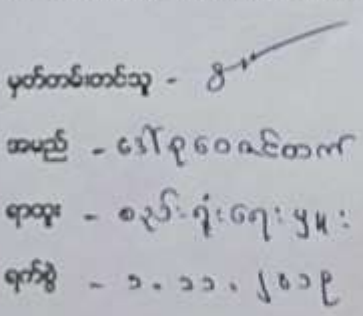 မှတ်တမ်းတင်သူ -
အမည် - ဒေါ်စုဝေဇင်တက်
ရာထူး - စည်းရုံးရေးမှူး
ရက်စွဲ - ၁.၁၁.၂၀၁၉